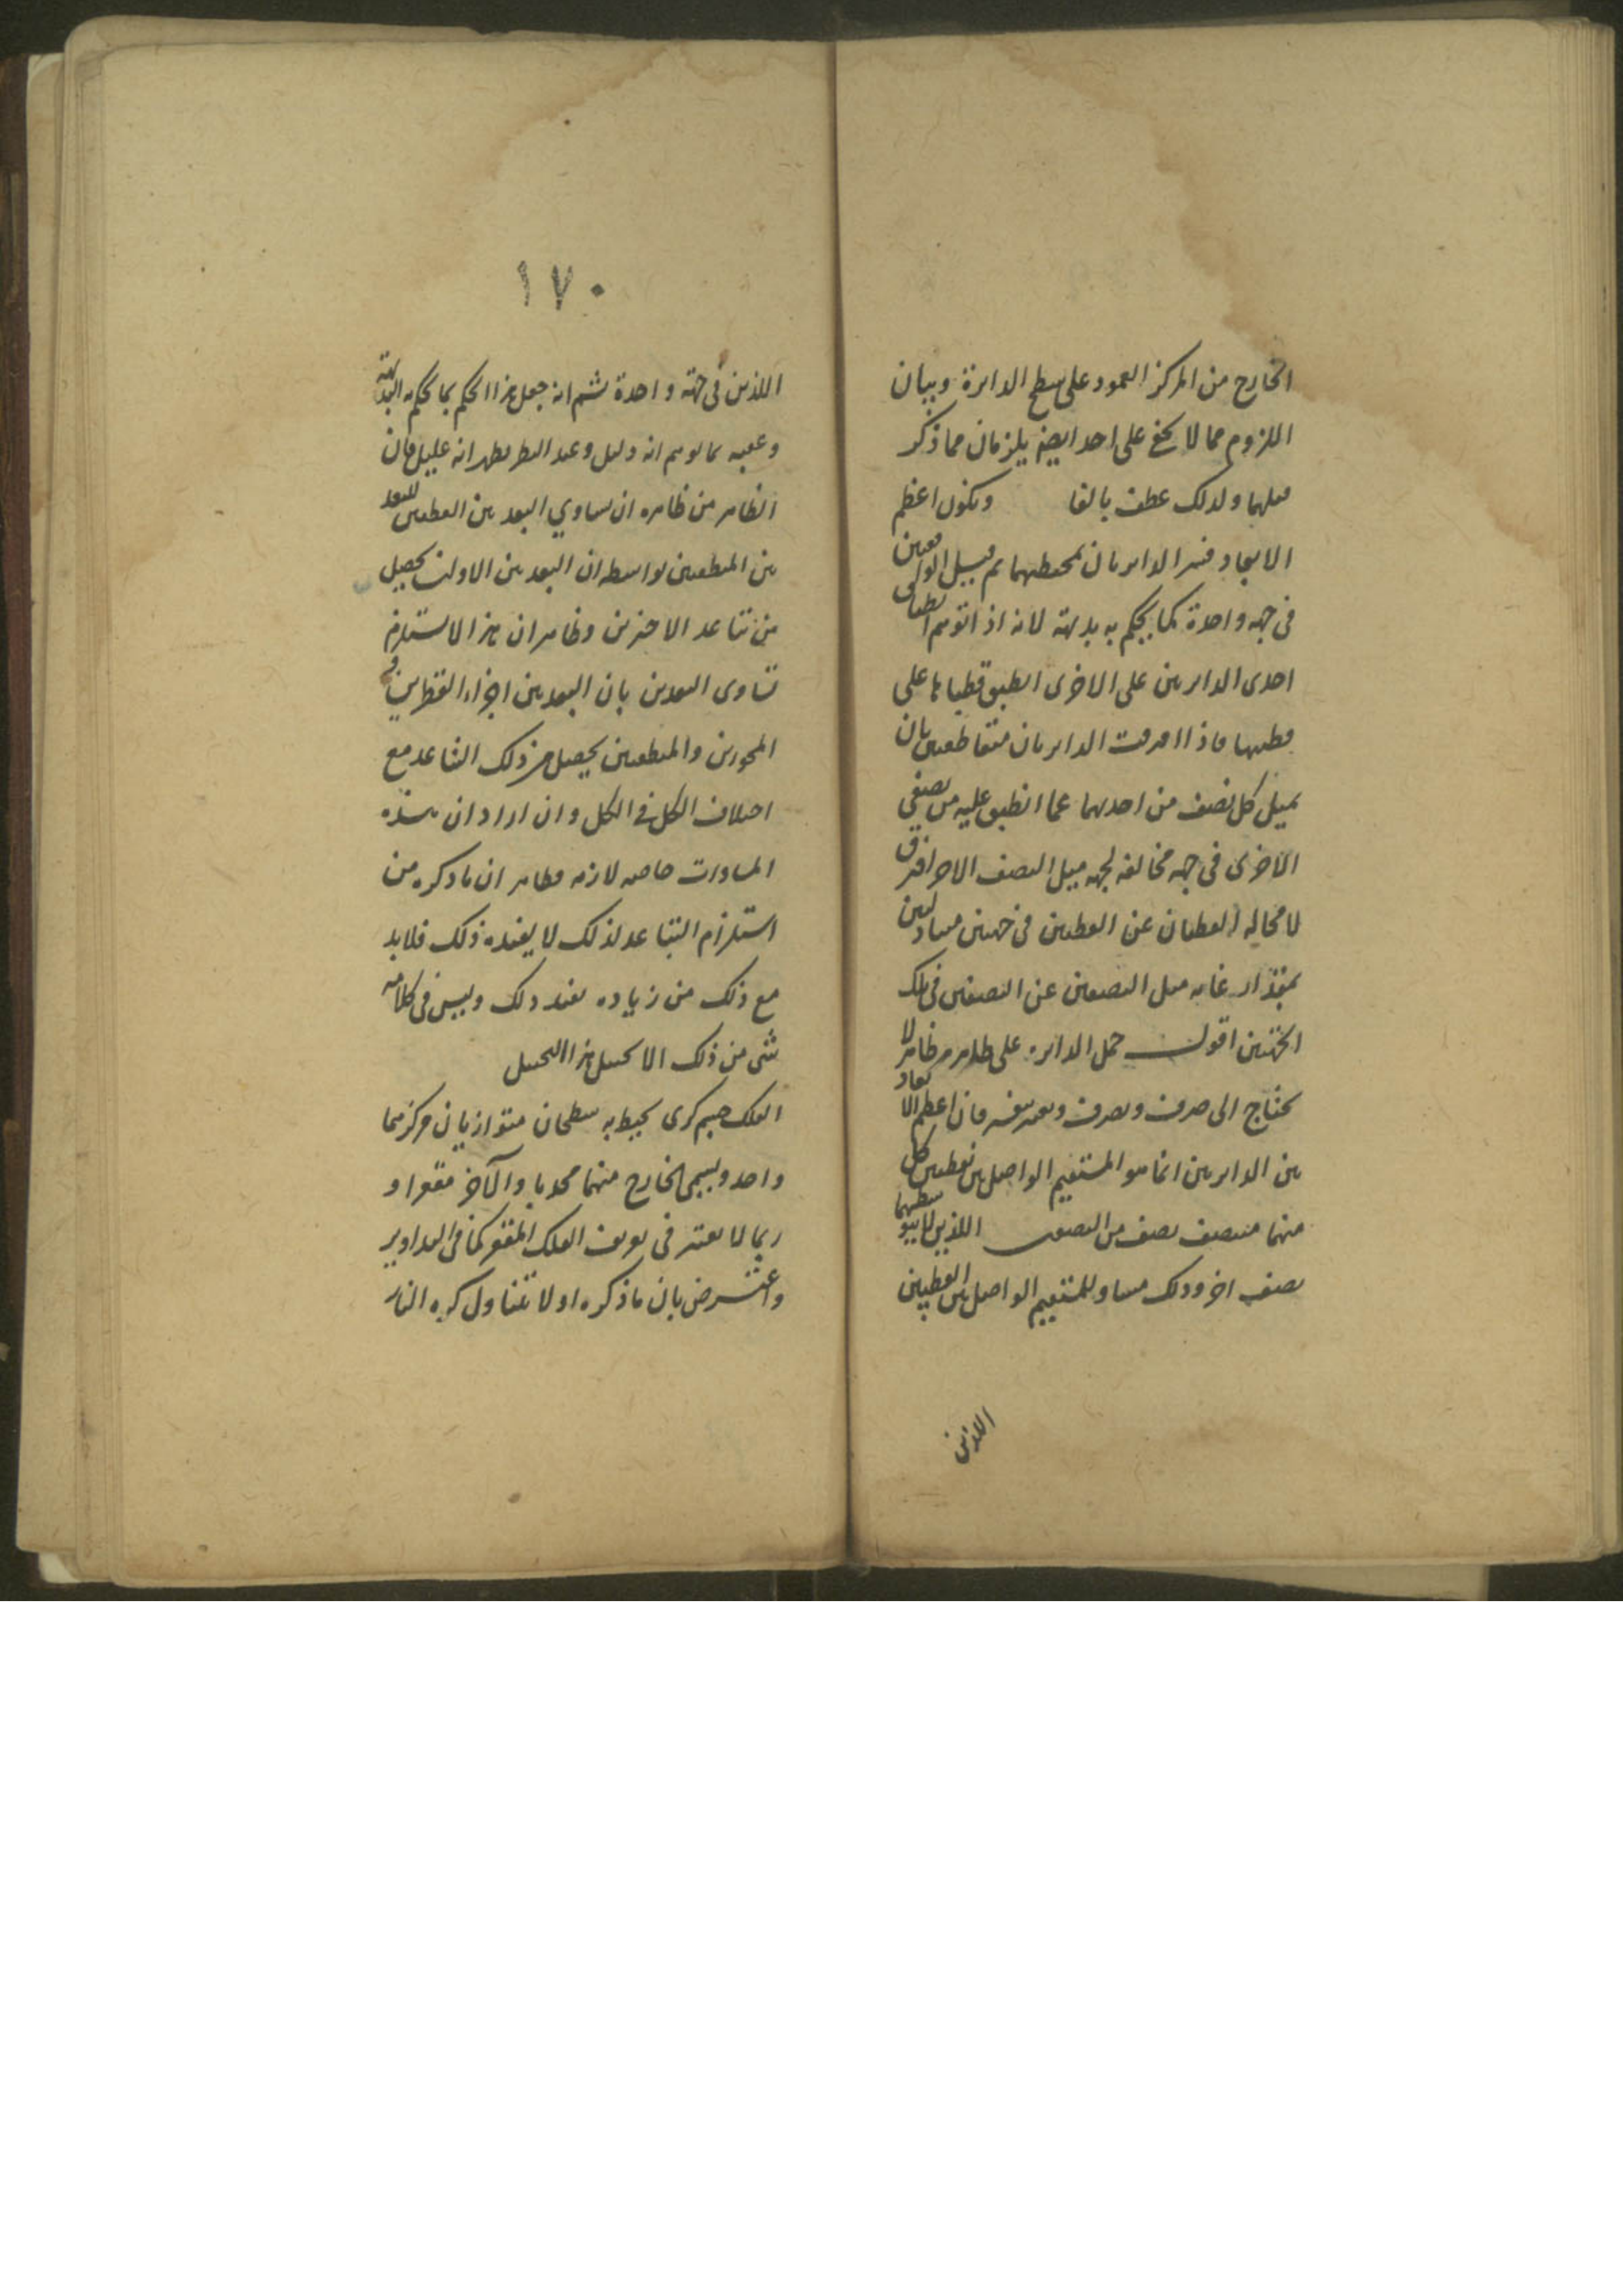 الخارج من المركز العمود على سطح الدائرة وبيان
اللزوم مما لا يخفى على احد ايضا يلزمان مما ذكر
ولذلك عطف بالفا ويكون اعظم
الابعاد الدائرتان
في جهة واحدة كما يحكم به بديهته لانه اذا توهم انطباق
احدى الدائرتين على الاخرى انطبق قطباها على
قطبيها فاذا افترقت الدائرتان متقاطعتين بان
يميل كل نصف من احديهما عما انطبق عليه من نصفي
الاخرى في جهة مخالفة لجهة ميل النصف الاخر افترق
لا محالة القطبان عن القطبين في جهتين متساويتين
بمقدار غاية ميل النصفين عن النصفين في تلك
الجهتين اقول حمل الدائرة على ظاهر لا
يحتاج الى صرف وتصرف فان اعظم الابعاد
بين الدائرتين انما هو المستقيم الواصل بين نقطتين كل
منهما منتصف نصف من النصفين اللذين
نصف اخر وذلك مساو للمستقيم الواصل بين القطبين
اللذين
١٧٠
اللذين في جهة واحدة ثم انه جعل هذا الحكم بما يحكم به البديهة
وعقبه بما يوهم انه دليل وعند النظر يظهر انه عليل فان
الظاهر من ظاهره ان تساوي البعد بين القطبين للبعد
بين المنطقتين بواسطة ان البعد بين الاولين يحصل
من تباعد الاخرين وظاهر ان هذا لا يستلزم
تساوى البعدين بان البعد بين اجزاء القطرين و
المحورين والمنطقتين يحصل من ذلك التباعد مع
اختلاف الكل في الكل وان اراد ان هذه
المساوات خاصة لازمة فظاهر ان ما ذكره من
استلزام التباعد لذلك لا يفيده ذلك فلابد
مع ذلك من زيادة تفيد ذلك وليس في كلامه
شئ من ذلك الا
الفلك جسم كرى يحيط به سطحان متوازيان مركزهما
واحد ويسمى الخارج منهما محدبا والآخر مقعرا و
ربما لا يعتبر في تعريف الفلك المقعر كما في التداوير
واعترض بان ما ذكره اولا يتناول كرة النار